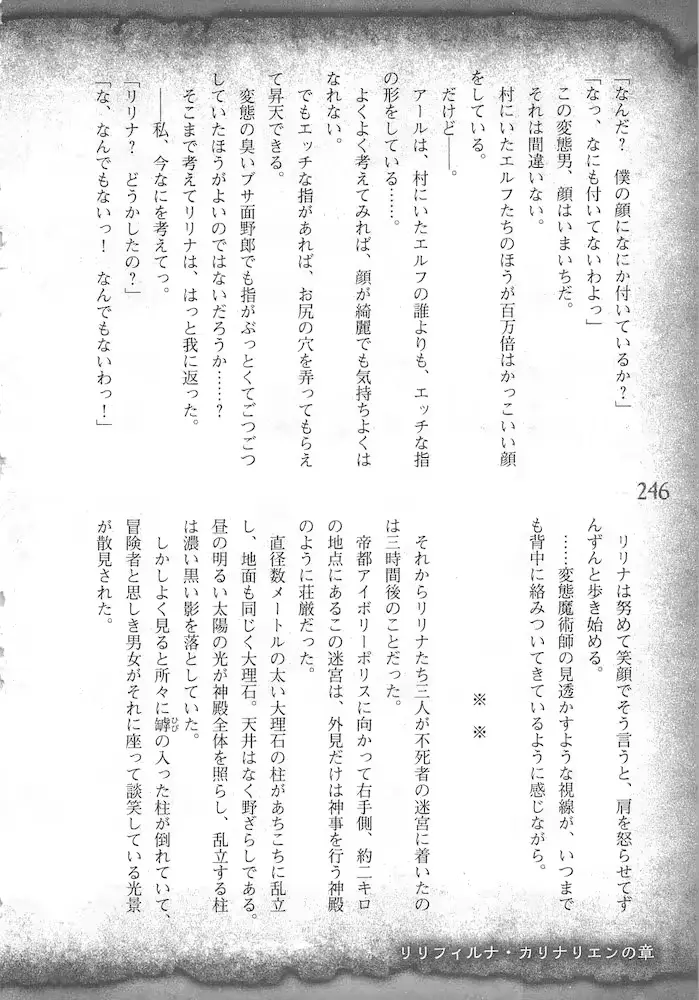 「なんだ？　僕の顔になにか付いているか？」
「なっ、なにも付いてないわよっ」
この変態男、顔はいまいちだ。
それは間違いない。
村にいたエルフたちのほうが百万倍はかっこいい顔
をしている。
だけど――。
アールは、村にいたエルフの誰よりも、エッチな指
の形をしている……。
よくよく考えてみれば、顔が綺麗でも気持ちよくは
なれない。
でもエッチな指があれば、お尻の穴を弄ってもらえ
て昇天できる。
変態の臭いブサ面野郎でも指がぶっとくてごつごつ
していたほうがよいのではないだろうか……？
そこまで考えてリリナは、はっと我に返った。
――私、今なにを考えてっ。
「リリナ？　どうかしたの？」
「な、なんでもないっ！　なんでもないわっ！」
246
リリナは努めて笑顔でそう言うと、肩を怒らせてず
んずんと歩き始める。
……変態魔術師の見透かすような視線が、いつまで
も背中に絡みついてきているように感じながら。
※　※
それからリリナたち三人が不死者の迷宮に着いたの
は三時間後のことだった。
帝都アイボリーポリスに向かって右手側、約二キロ
の地点にあるこの迷宮は、外見だけは神事を行う神殿
のように荘厳だった。
直径数メートルの太い大理石の柱があちこちに乱立
し、地面も同じく大理石。天井はなく野ざらしである。
昼の明るい太陽の光が神殿全体を照らし、乱立する柱
は濃い黒い影を落としていた。
しかしよく見ると所々に罅ひびの入った柱が倒れていて、
冒険者と思しき男女がそれに座って談笑している光景
が散見された。
リリフィルナ・カリナリエンの章